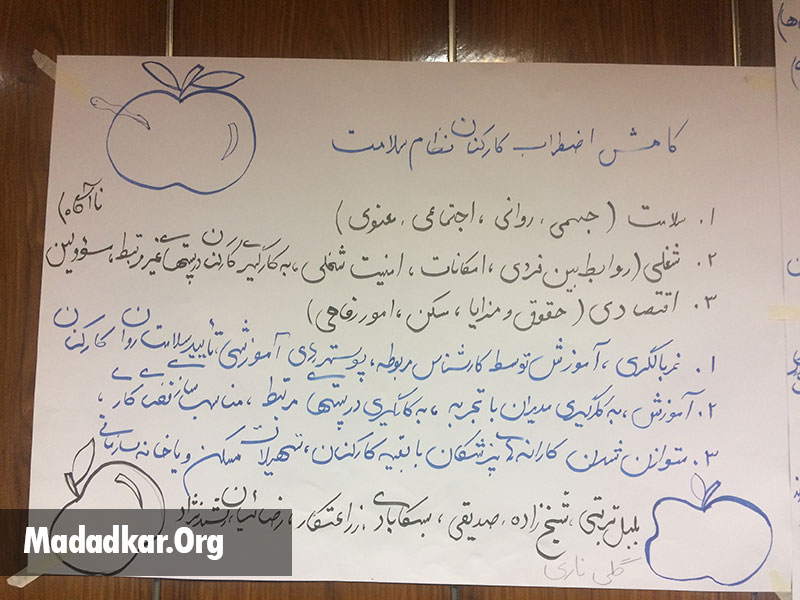 کاهش اضطراب کارکنان نظام سلامت
۱. سلامت (جسمی، روانی، اجتماعی، معنوی)
۲. شغلی (روابط بین فردی، امکانات، امنیت شغلی، به کارگیری کارکنان در پستهای غیر مرتبط، مسؤولین ناآگاه)
۳. اقتصادی (حقوق و مزایا، مسکن، امور رفاهی)
۱. غربالگری، آموزش توسط کارشناس مربوطه، پوسترهای آموزشی، تأیید سلامت روان کارکنان
۲. آموزش، به کارگیری مدیران با تجربه، به کارگیری در پستهای مرتبط، مناسب سازی فضای کار،
۳. متوازن شدن کارانه های پزشکان با بقیه کارکنان، تسهیلات مسکن و یا خانه سازمانی
بلبل تربتی، شیخ زاده، صدیقی، زراعتکار، رضائیان
گلی ناری
Madadkar.Org